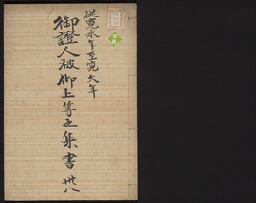 従寛永年至寛文年
御證人被御上等之集書 卅八